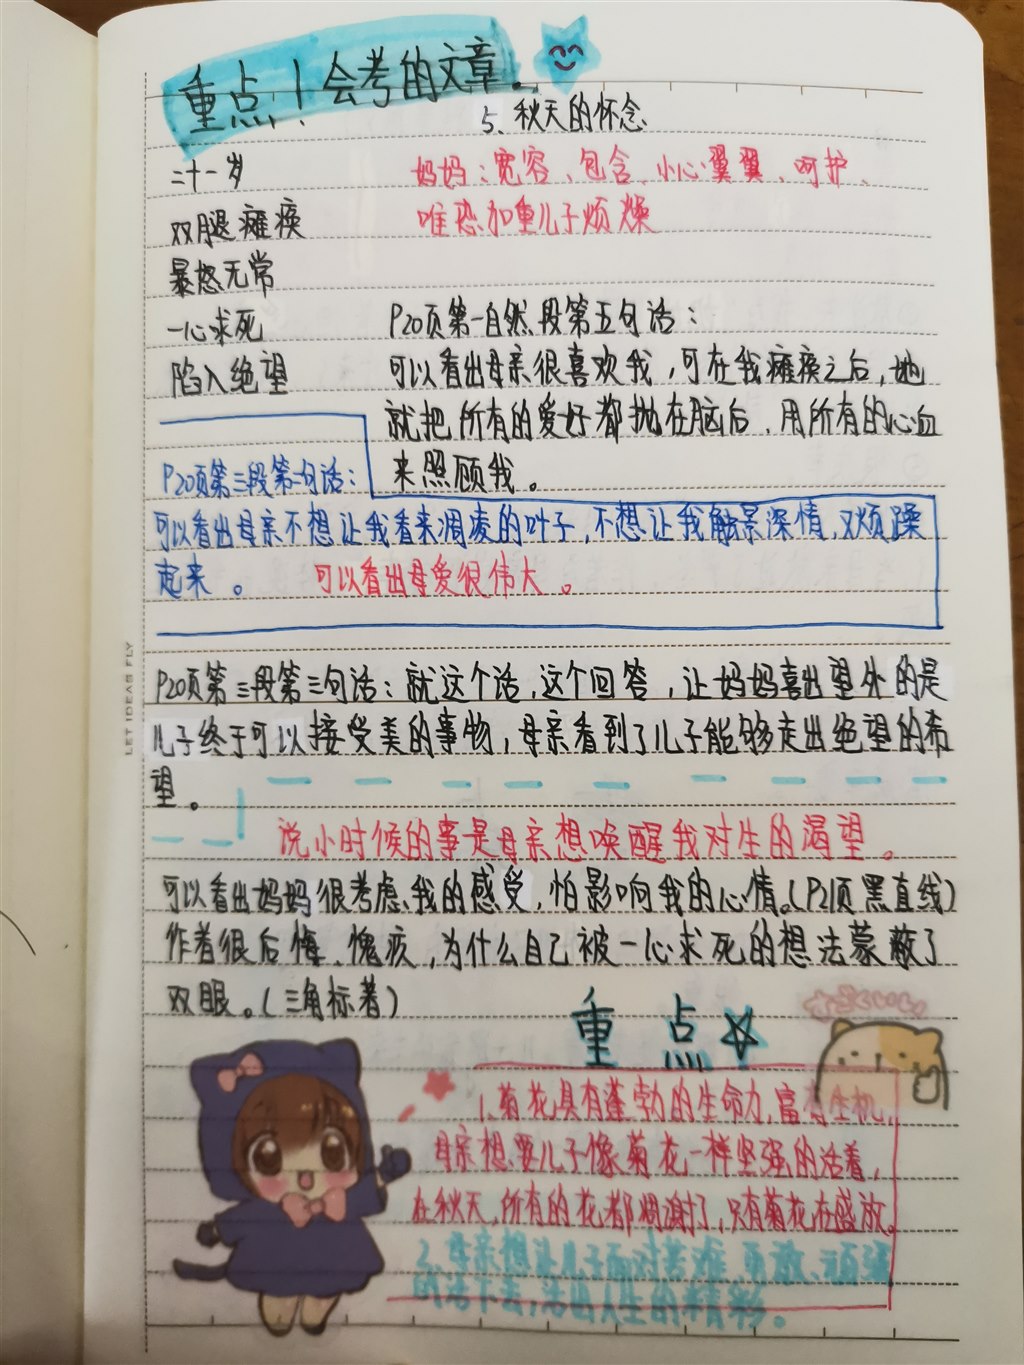 重点！会考的文章。
5、秋天的怀念
二十一岁
妈妈：宽容、包含、小心翼翼、呵护、
双腿瘫痪
唯恐加重儿子烦燥
暴怒无常
一心求死
P20页第一自然段第五句话：
陷入绝望
可以看出母亲很喜欢我，可在我瘫痪之后，她
就把所有的爱好都抛在脑后，用所有的心血
来照顾我。
P20页第三段第一句话：
可以看出母亲不想让我看来凋凌的叶子，不想让我触景深情，又烦躁
起来。 可以看出母爱很伟大。
LET IDEAS FLY
P20页第三段第三句话：就这个话，这个回答，让妈妈喜出望外的是
儿子终于可以接受美的事物，母亲看到了儿子能够走出绝望的希
望。
说小时候的事是母亲想唤醒我对生的渴望。
可以看出妈妈很考虑我的感受，怕影响我的心情。（P21页黑直线）
作者很后悔、愧疚，为什么自己被一心求死的想法蒙蔽了
双眼。（三角标著）
重点
1、菊花具有蓬勃的生命力，富有生机，
母亲想要儿子像菊花一样坚强的活着，
在秋天，所有的花都凋谢了，只有菊花在盛放。
2、母亲想让儿子面对苦难，勇敢、顽强
的活下去，活出人生的精彩。